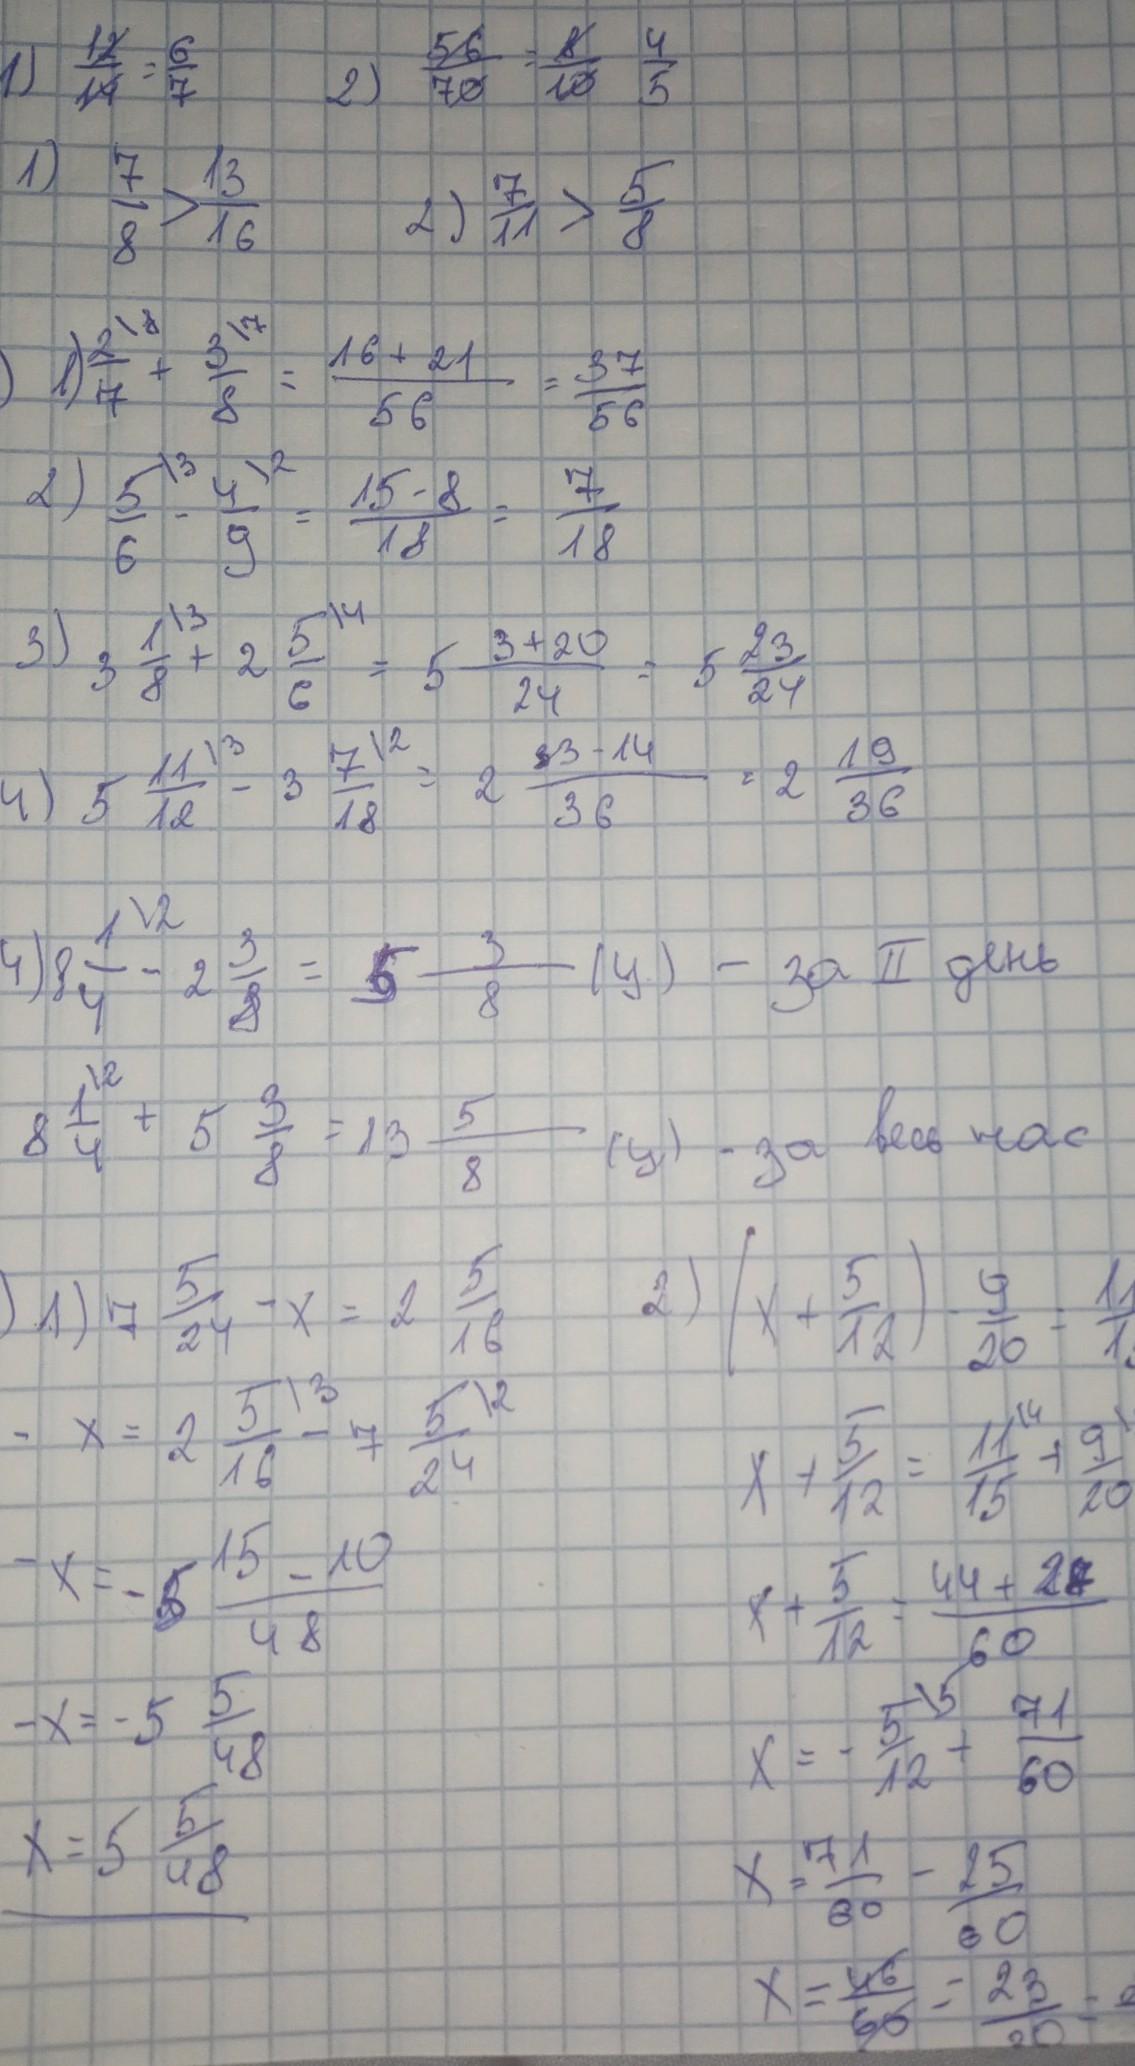 1) 12/14 = 6/7 2) 56/70 = 8/10 4/5
1) 7/8 > 13/16 2) 7/11 > 5/8
) 1) 2\8/7 + 3\7/8 = 16+21/56 = 37/56
2) 5\3/6 - 4\2/9 = 15-8/18 = 7/18
3) 3 1\3/8 + 2 5\4/6 = 5 3+20/24 = 5 23/24
4) 5 11\3/12 - 3 7\2/18 = 2 33-14/36 = 2 19/36
4) 8 1\2/4 - 2 3/8 = 5 3/8 (ц.) - за II день
8 1\2/4 + 5 3/8 = 13 5/8 (ц.) - за весь час
) 1) 7 5/24 - x = 2 5/16
- x = 2 5\3/16 - 7 5\2/24
-x = -5 15-10/48
-x = -5 5/48
x = 5 5/48
2) (x + 5/12) - 9/20 = 11/1
x + 5/12 = 11\4/15 + 9/20
x + 5/12 = 44+27/60
x = - 5\5/12 + 71/60
x = 71/60 - 25/60
x = 46/60 = 23/30 =